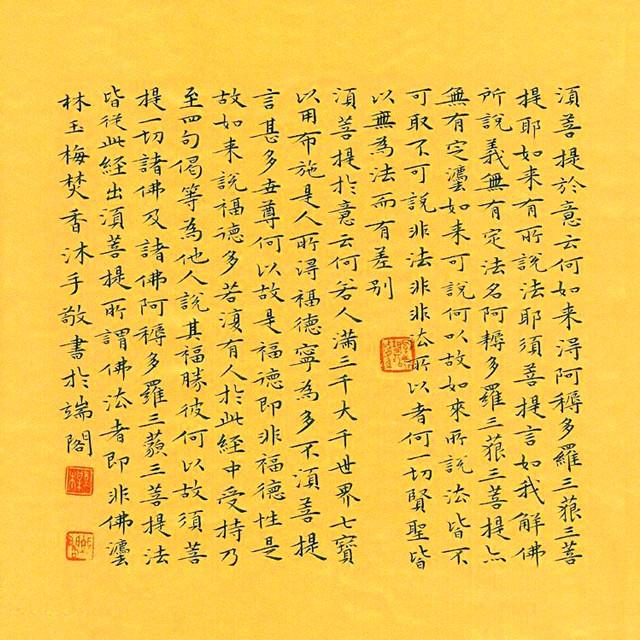 須菩提於意云何如来得阿耨多羅三藐三菩
提耶如来有所說法耶須菩提言如我解佛
所說義無有定法名阿耨多羅三藐三菩提亦
無有定灋如来可說何以故如来所說法皆不
可取不可說非法非非法所以者何一切賢聖皆
以無為法而有差别
須菩提於意云何若人滿三千大千世界七寶
以用布施是人所得福德寧為多不須菩提
言甚多世尊何以故是福德即非福德性是
故如来說福德多若復有人於此經中受持乃
至四句偈等為他人說其福勝彼何以故須菩
提一切諸佛及諸佛阿耨多羅三藐三菩提法
皆從此經出須菩提所謂佛法者即非佛灋
林玉梅焚香沐手敬書於端閣